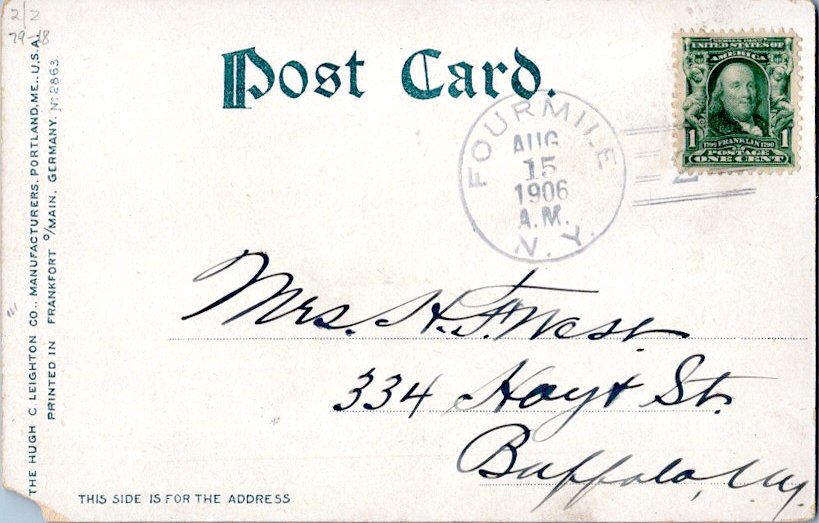 2/2
79-18
Post Card.
UNITED STATES OF
AMERICA
1 1
FRANKLIN
POSTAGE
ONE CENT
FOURMILE
AUG
15
1906
A.M.
N.Y.
Mrs. H. F. West
334 Hoyt St.
Buffalo, N.Y.
THIS SIDE IS FOR THE ADDRESS
THE HUGH C. LEIGHTON CO., MANUFACTURERS, PORTLAND, ME., U.S.A.
PRINTED IN FRANKFORT o/MAIN, GERMANY. No 2863